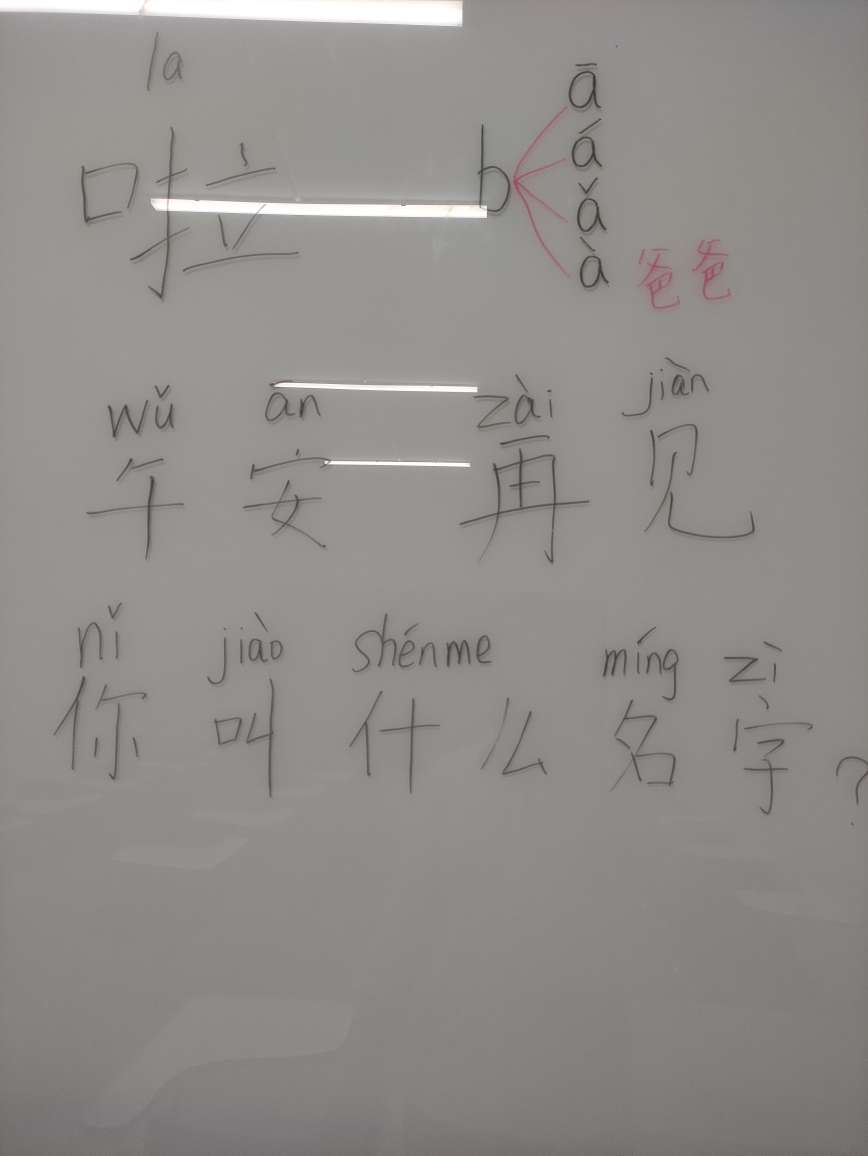 la
啦 b ā á ǎ à 爸爸
wǔ ān zài jiàn
午安 再见
nǐ jiào shénme míng zì
你叫什么名字?